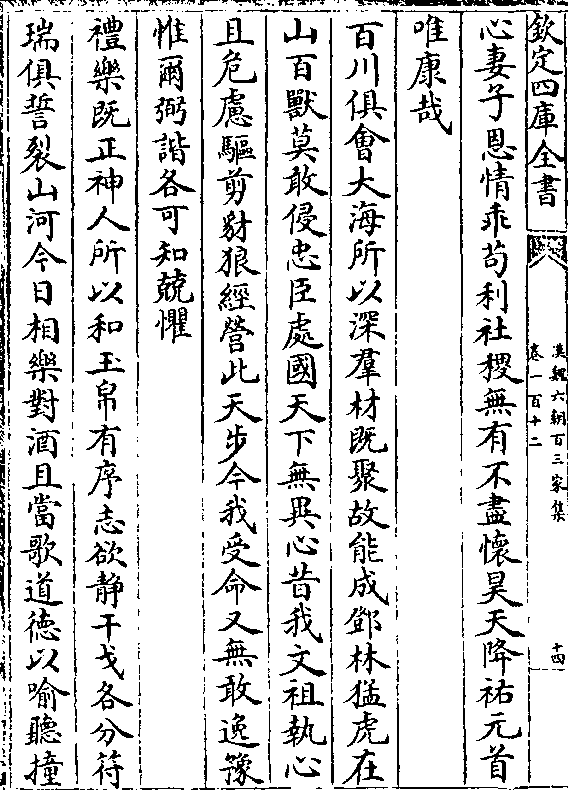 欽定四庫全書
漢魏六朝百三家集
卷一百十二
十四
心妻子恩情乖苟利社稷無有不盡懷昊天降祐元首
唯康哉
百川俱會大海所以深羣材既聚故能成鄧林猛虎在
山百獸莫敢侵忠臣處國天下無異心昔我文祖執心
且危慮驅剪豺狼經營此天步今我受命又無敢逸豫
惟爾弼諧各可知兢懼
禮樂既正神人所以和玉帛有序志欲静干戈各分符
瑞俱誓裂山河今日相樂對酒且當歌道徳以喻聽撞